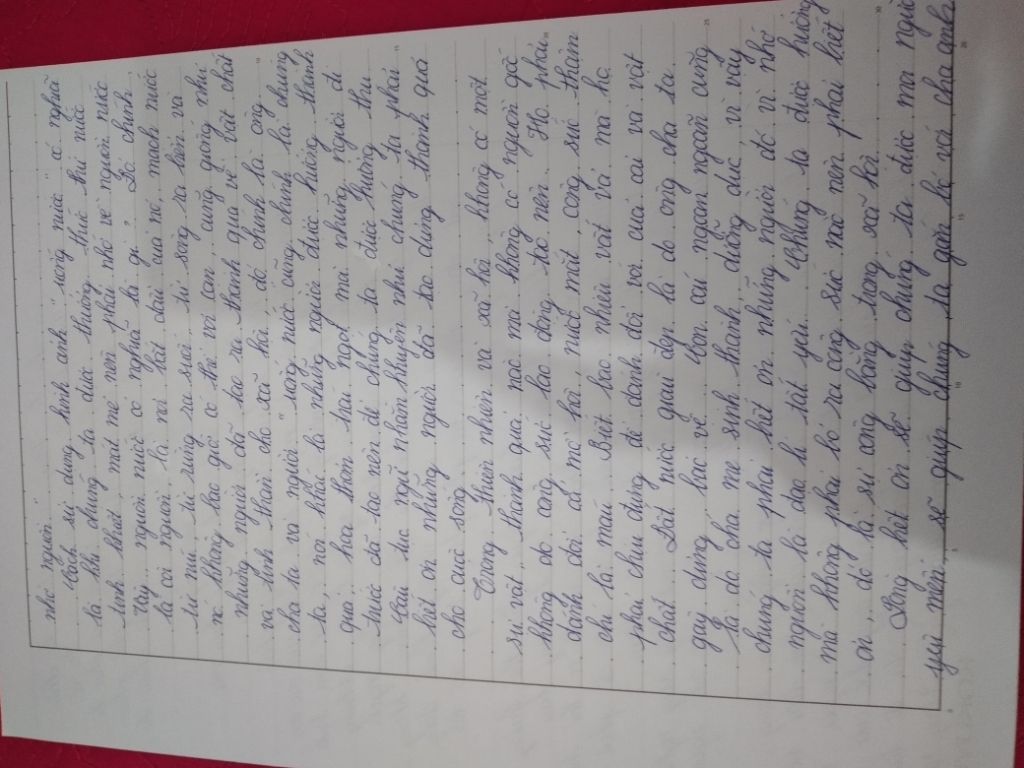 nhớ nguồn"
Cách sử dụng hình ảnh "uống nước" có nghĩa
là khi chúng ta được thưởng thức thứ nước
tinh khiết, mát mẻ nên phải nhớ về nguồn nước
Vậy nguồn nước có nghĩa là gì? Đó chính
là cội nguồn, là nơi bắt đầu của nó, mạch nước
từ núi, từ rừng ra suối, từ sông ra biển và
nó không bao giờ có thể vơi cạn, cũng giống như
những người đã tạo ra thành quả về vật chất
và tinh thần cho xã hội, đó chính là ông
cha ta và người "uống nước" cũng chính là chúng
ta, nói khái là những người được hưởng thành
quả, hoa thơm trái ngọt mà những người đi
trước đã tạo nên để chúng ta được hưởng thụ.
Câu tục ngữ nhằm khuyên nhủ chúng ta phải
biết ơn những người đã tạo dựng thành quả
cho cuộc sống.
Trong thiên nhiên và xã hội, không có một
sự vật, thành quả nào mà không có nguồn gốc
không do công sức lao động tạo nên. Họ phải
đánh đổi cả mồ hôi, nước mắt, công sức thậm
chí là máu. Biết bao nhiêu vất vả mà họ
phải chịu đựng để dành đổi với của cải và vật
chất. Đất nước giàu đẹp là do ông cha ta
gây dựng, bảo vệ. Con cái ngoan ngoãn cũng
là do cha mẹ sinh thành, dưỡng dục, vì vậy
chúng ta phải biết ơn những người đó vì nhớ
nguồn là đạo lí tất yếu. Chúng ta được hưởng
mà không phải bỏ ra công sức nào nên phải biết
ơn, đó là sự công bằng trong xã hội.
Lòng biết ơn sẽ giúp chúng ta được mọi người
yêu mến, sẽ giúp chúng ta gắn bó với cha anh